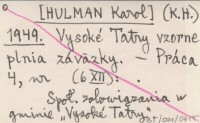 [HULMAN Karol] (K.H.)
1949. Vysoké Tatry vzorne
plnia záväzky. – Práca
4, nr (6 XII): .
Społ. zobowiązania w
gminie „Vysoké Tatry"